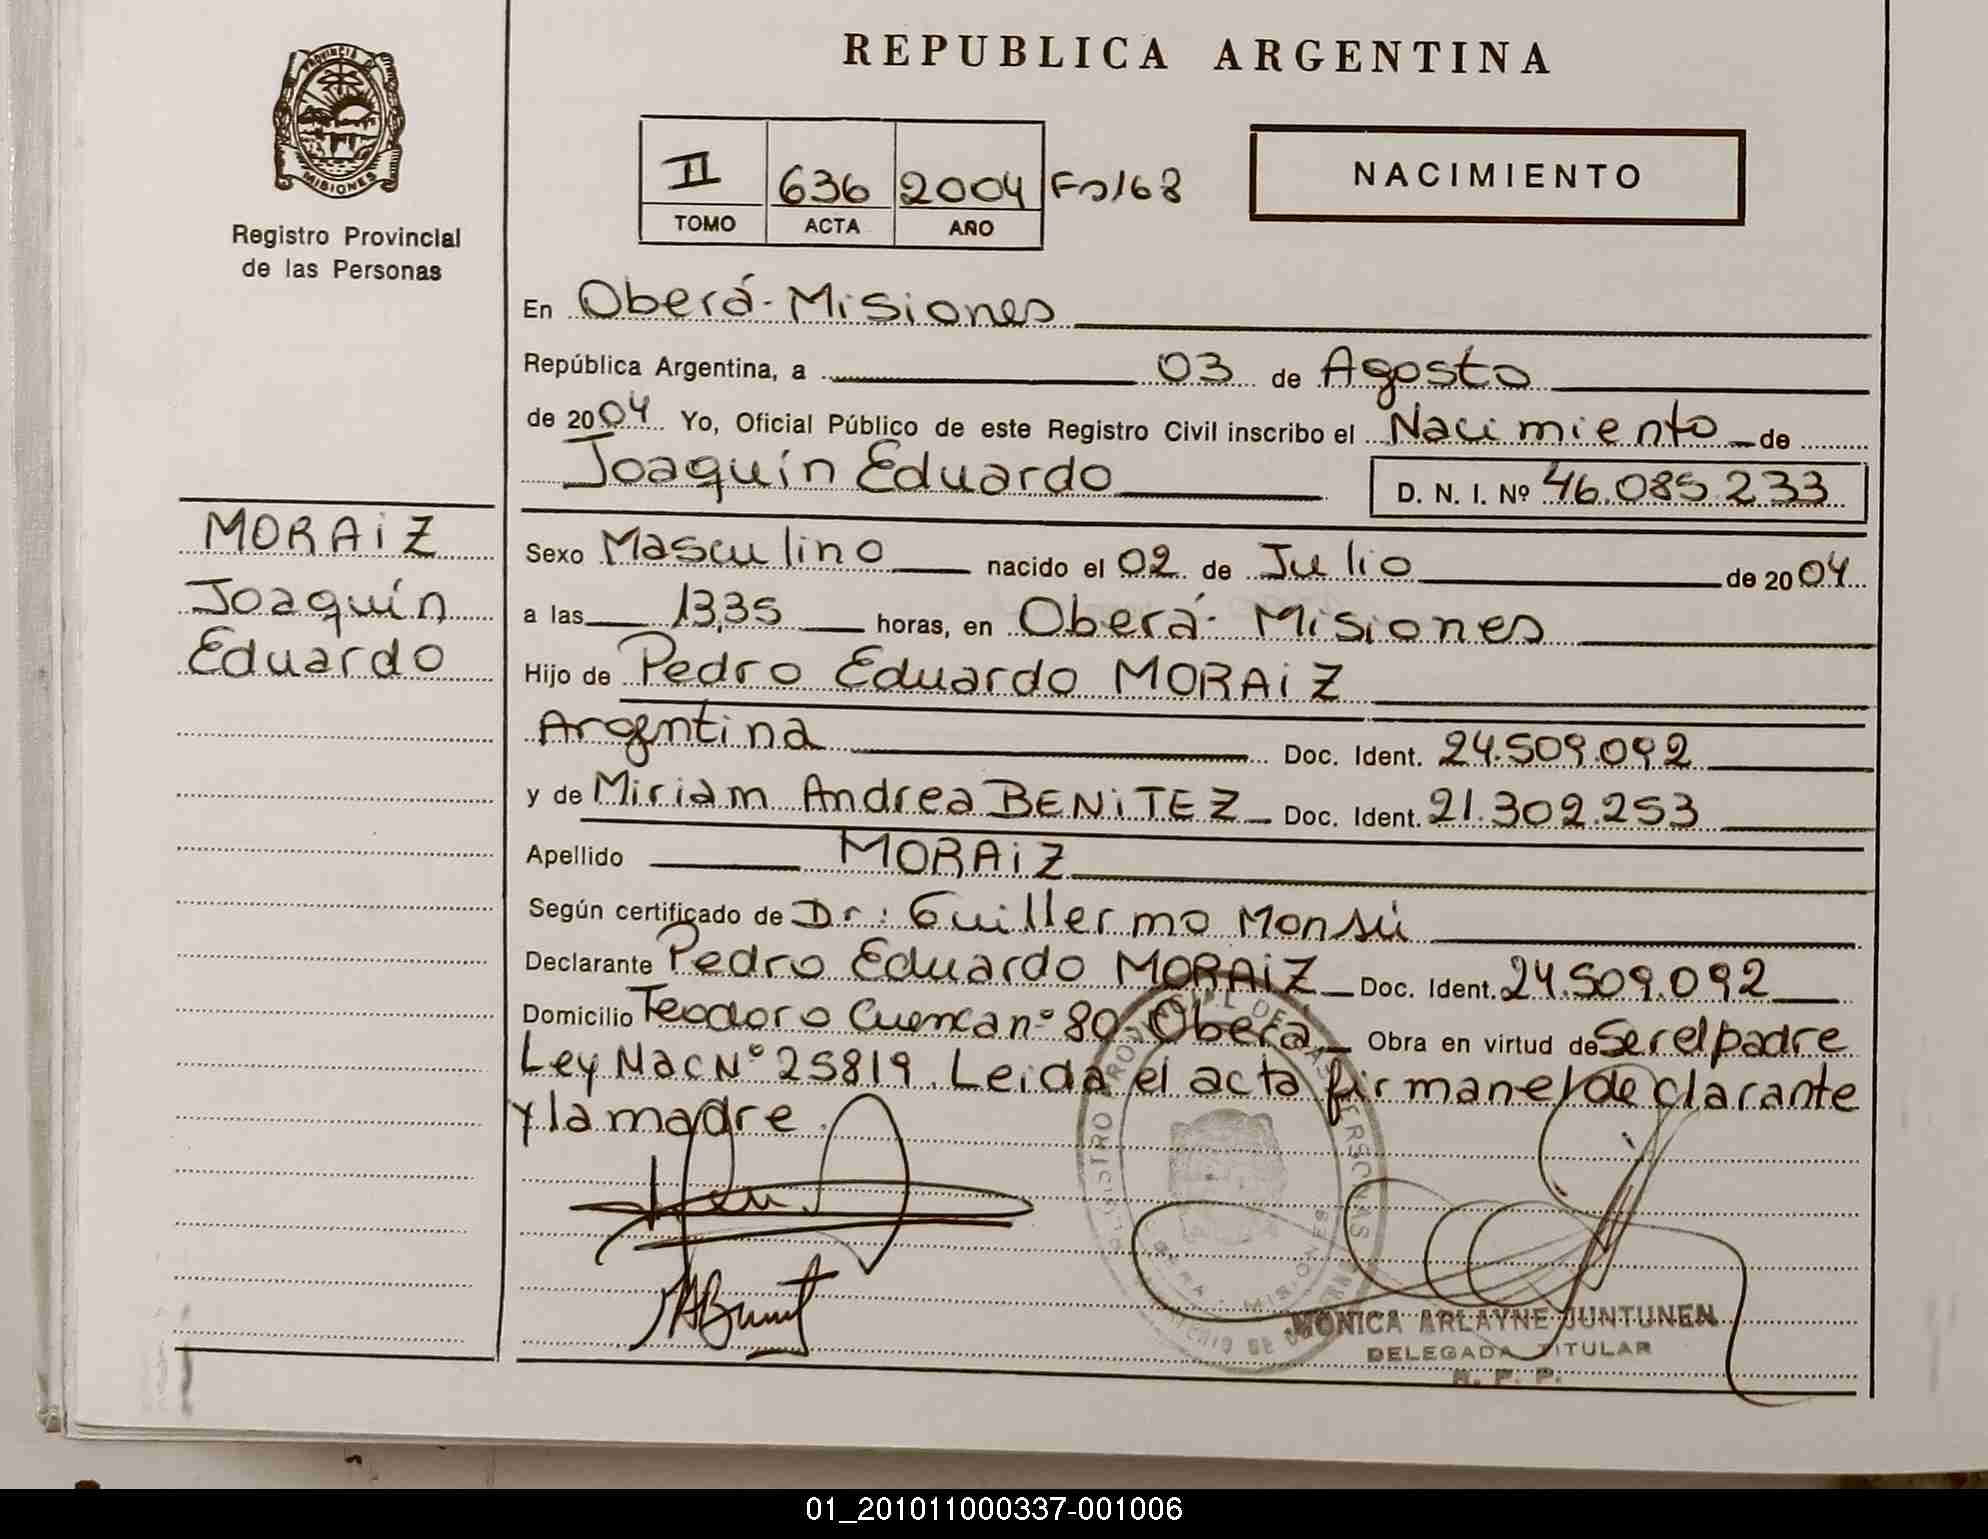 PROVINCIA DE
MISIONES
Registro Provincial
de las Personas
MORAiZ
Joaquín
Eduardo
REPUBLICA ARGENTINA
II 636 2004 Fo 168
TOMO ACTA AÑO
NACIMIENTO
En Oberá - Misiones
República Argentina, a 03 de Agosto
de 2004 Yo, Oficial Público de este Registro Civil inscribo el Nacimiento de
Joaquín Eduardo D. N. I. Nº 46.085.233
Sexo Masculino nacido el 02 de Julio de 2004
a las 13,35 horas, en Oberá - Misiones
Hijo de Pedro Eduardo MORAiZ
Argentina Doc. Ident. 24.509.092
y de Miriam Andrea BENiTEZ Doc. Ident. 21.302.253
Apellido MORAiZ
Según certificado de Dr: Guillermo Monsú
Declarante Pedro Eduardo MORAiZ Doc. Ident. 24.509.092
Domicilio Teodoro Cuenca nº 80 Oberá Obra en virtud de Ser el padre
Ley Nac Nº 25819. Leida el acta firman el declarante
y la madre.
MONICA ARLAYNE JUNTUNEN
DELEGADA TITULAR
01_201011000337-001006